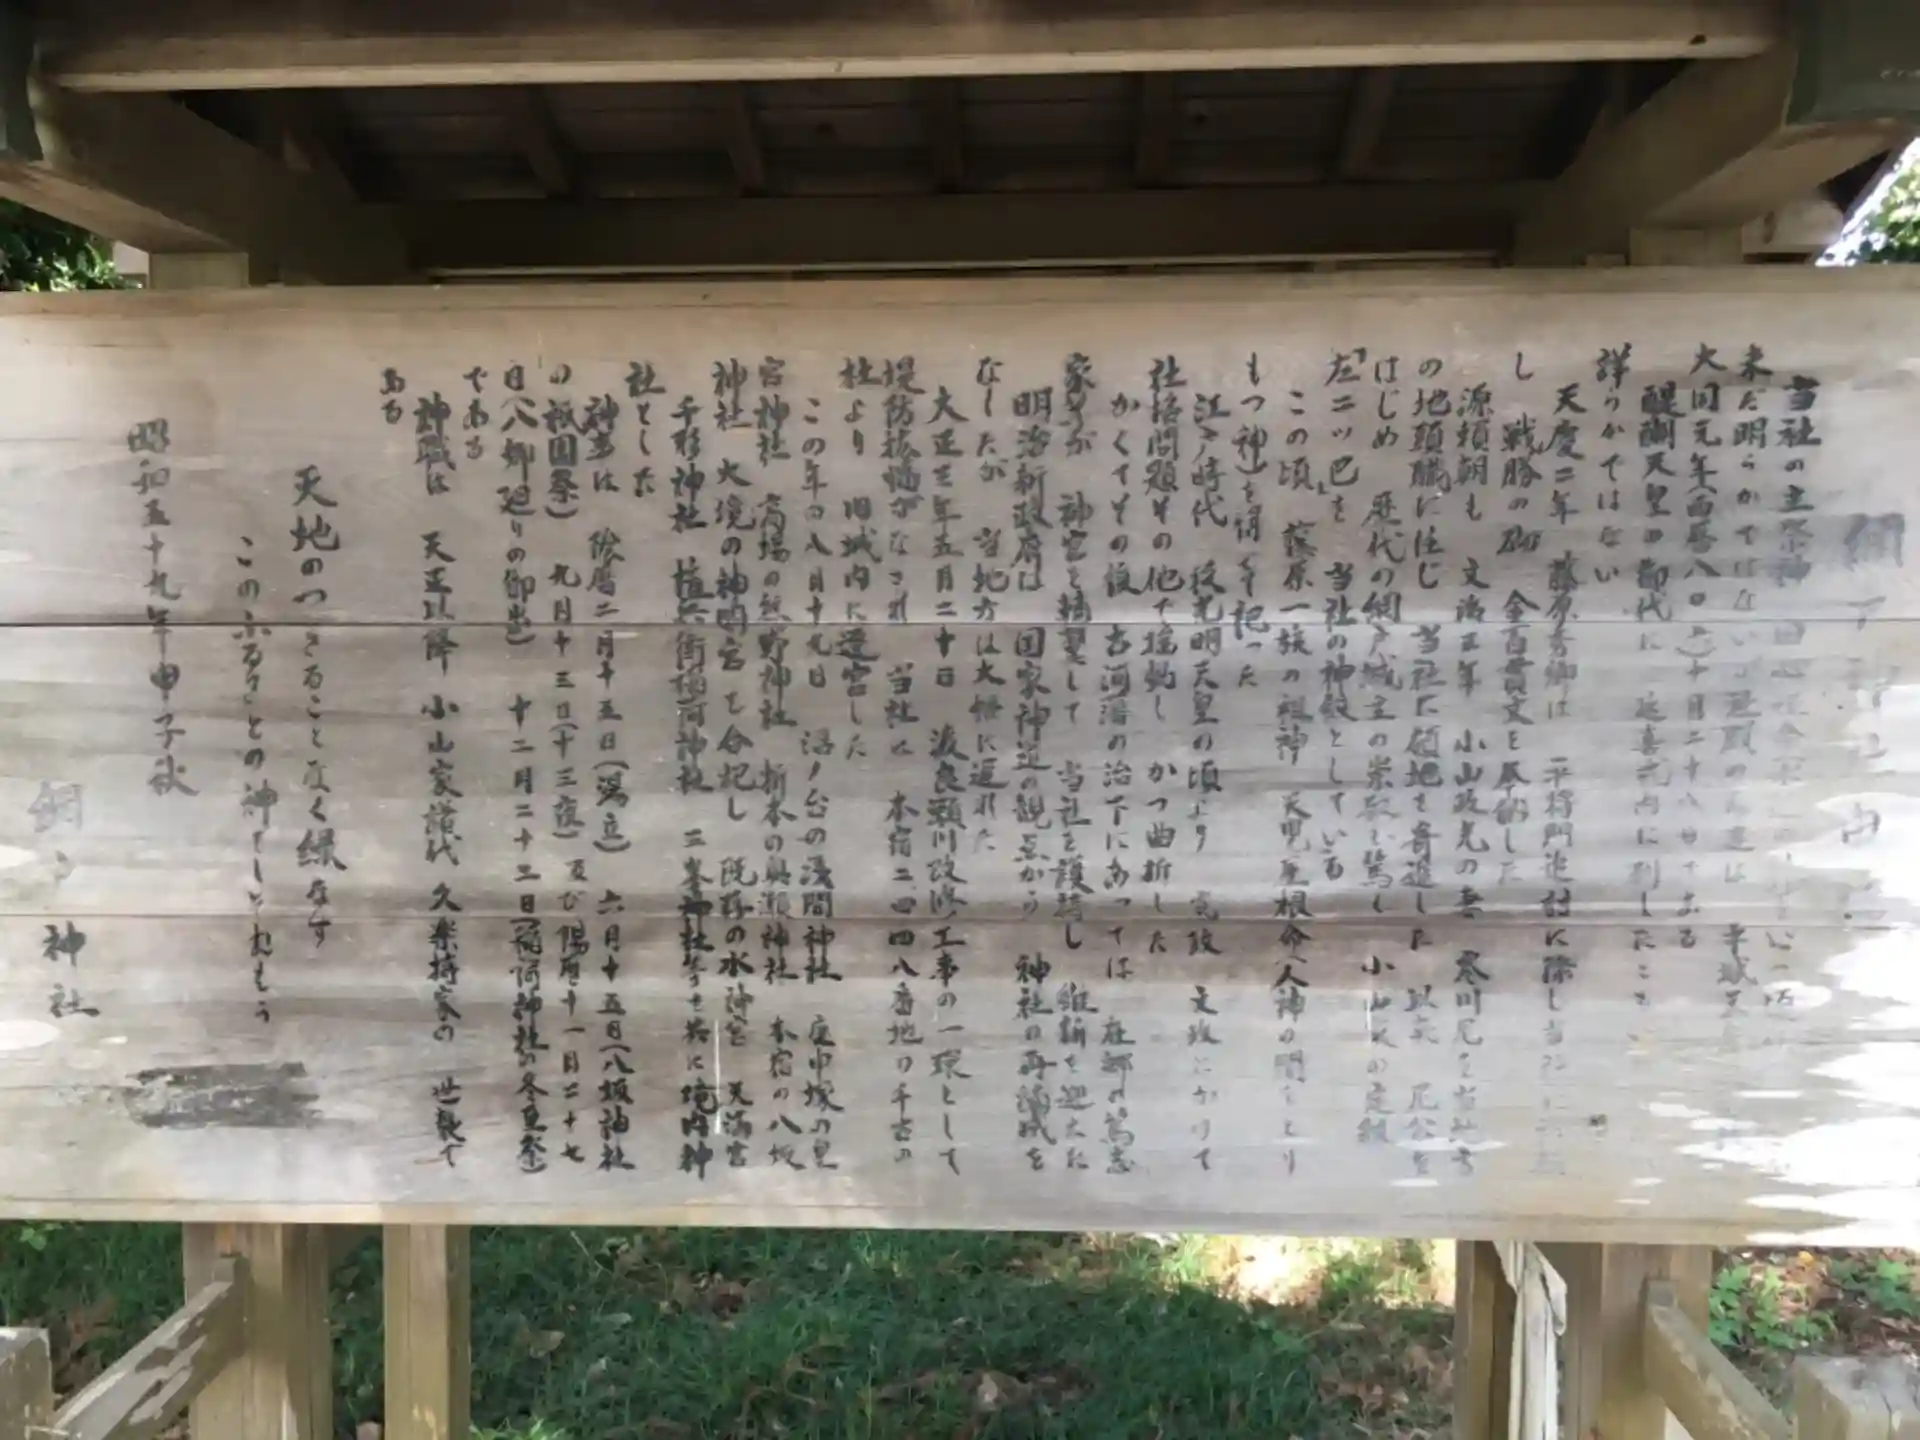 網戸神社
当社の主祭神
未だ明らかではないが 社殿の 平城天
大同元年(西暦八〇六)十月二十八日である
醍醐天皇の御代に 延喜式内に列したこと
詳らかではない
天慶二年 藤原秀郷は 平将門追討に際し当社に
し 戦勝の砌 金百貫文を奉納した
源頼朝も 文治三年 小山政光の妻 寒川尼を当地方
の地頭職に任じ 当社に領地を寄進した 以来 尼公を
はじめ 歴代の網戸城主の崇敬が篤く 小山氏の定紋
「左二ツ巴」を 当社の神紋としている
この頃 藤原一族の祖神 天児屋根命(人神の間をとり
もつ神)を併せて祀った
江戸時代 後光明天皇の頃より 寛政 文政にかけて
社格問題その他で揺動し かつ曲折した
かくてその後 古河藩の治下にあっては 在郷の篤志
家等が 神宮を擁望して 当社を護持し 維新を迎えた
明治新政府は 国家神道の観点から 神社の再編成を
なしたが 当地方は大幅に遅れた
大正三年五月二十日 渡良瀬川改修工事の一環として
堤防拡幅がなされ 当社は 本宿二、四四八番地の千古の
社より 旧城内に遷宮した
この年の八月十九日 沼ノ台の浅間神社 庚申塚の星
宮神社 高場の熊野神社 新本の興瀬神社 本宿の八坂
神社 大境の神明宮を合祀し 既存の水神宮 天満宮
千形神社 植兵衛稲荷神社 三峯神社等を共に境内神
社とした
神事は 陰暦二月十五日(湯立) 六月十五日(八坂神社
の祇園祭) 九月十三日(十三夜)及び陽暦十一月二十七
日(八郷廻りの御出) 十二月二十三日(稲荷神社の冬至祭)
である
神職は 天正以降 小山家譜代 久楽持家の 世襲で
ある
天地のつきることなく緑なす
このふるさとの神
昭和五十九年甲子秋
網戸神社